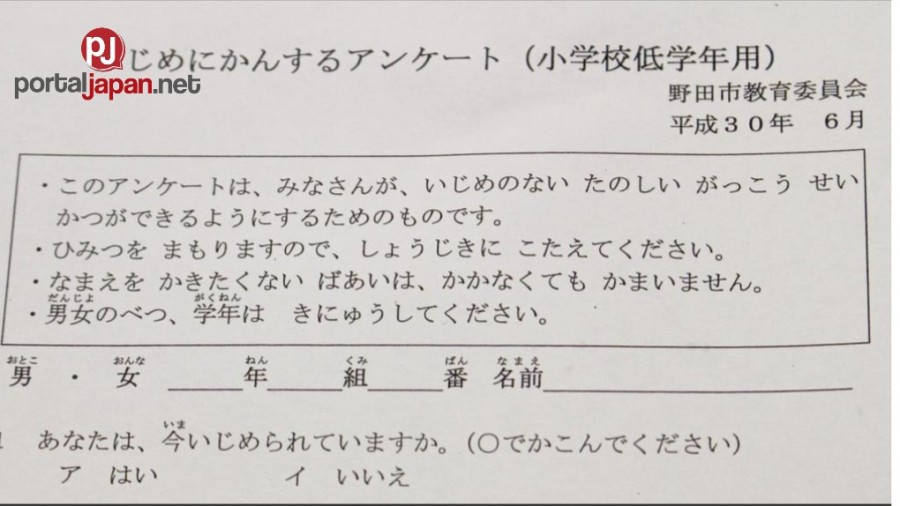 PJ
portaljapan.net
じめにかんするアンケート（小学校低学年用）
野田市教育委員会
平成３０年　６月
・このアンケートは、みなさんが、いじめのない たのしい がっこう せい
かつができるようにするためのものです。
・ひみつを まもりますので、しょうじきに こたえてください。
・なまえを かきたくない ばあいは、かかなくても かまいません。
だんじょ がくねん
・男女のべつ、学年は きにゅうしてください。
おとこ おんな ねん くみ ばん なまえ
男 ・ 女 ＿＿＿年＿＿＿組＿＿＿番 名前＿＿＿＿＿＿＿＿＿＿＿＿
いま
あなたは、今いじめられていますか。（○でかこんでください）
ア はい イ いいえ